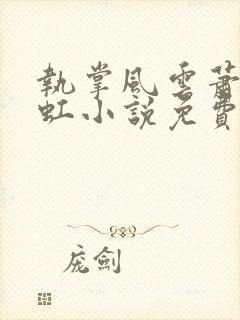 執掌風雲蕭
虹小說免費
庞劍